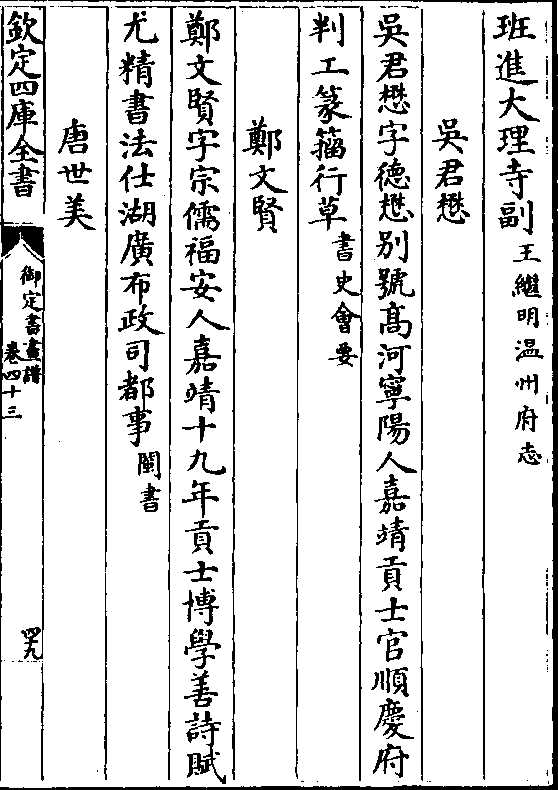 班進大理寺副王繼明温州府志
吳君懋
吳君懋字德懋别號髙河寧陽人嘉靖貢士官順慶府
判工篆籕行草書史會要
鄭文賢
鄭文賢字宗儒福安人嘉靖十九年貢士博學善詩賦
尤精書法仕湖廣布政司都事閩書
唐世美
欽定四庫全書
御定書畫譜
卷四十三
四九